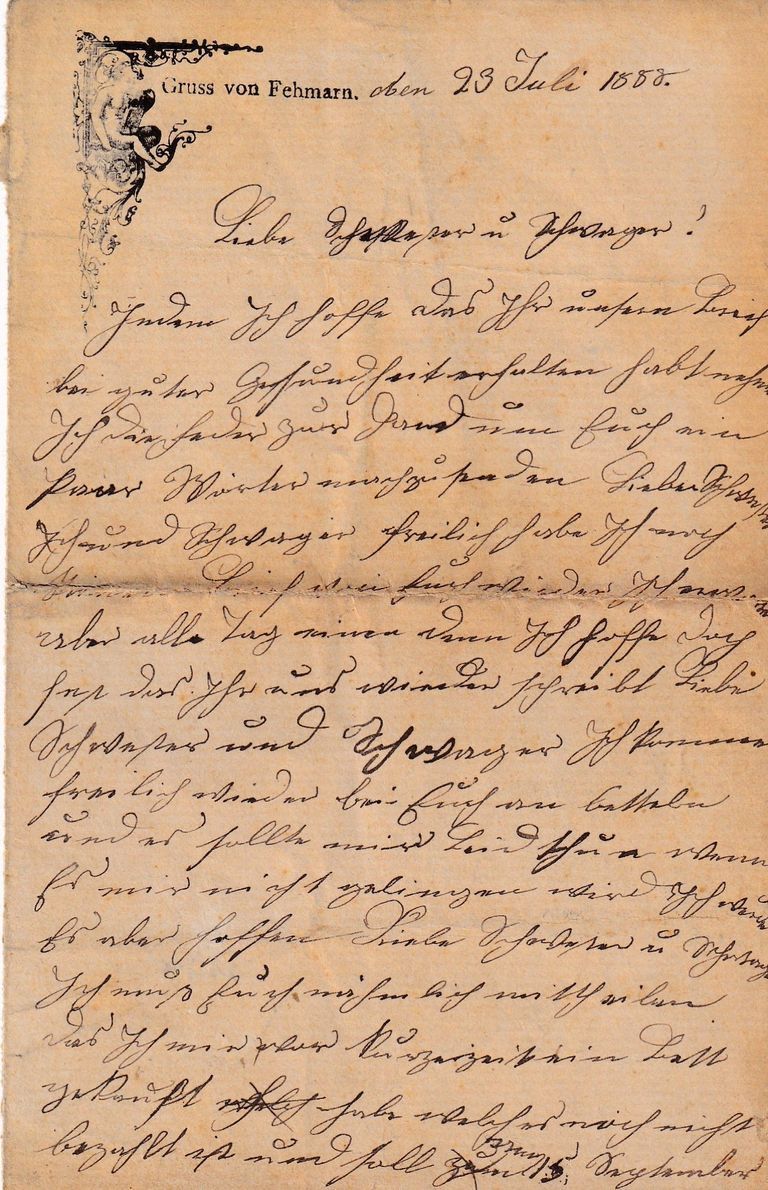 Gruss von Fehmarn. den 23 Juli 1888.
Liebe Schwester u Schwager!
Indem Ich hoffe das Ihr unsern Brief
bei guter Gesundheit erhalten habt nehme
Ich die Feder zur Hand um Euch ein
paar Wörter nachzusenden Liebe Schwester
und Schwager freilich habe Ich noch
keinen Brief von Euch wieder Ich
aber alle Tag einen denn Ich hoffe doch
fest das Ihr uns wieder schreibt Liebe
Schwester und Schwager Ich komme
freilich wieder bei Euch an betteln
und es sollte mir Leid thun wenn
Es mir nicht gelingen wird Ich werde
Es aber hoffen Liebe Schwester u Schwager
Ich muß Euch nähmlich mittheilen
das Ich mir vor kurzerzeit ein Bett
gekauft habe welches noch nicht
bezahlt ist und soll zum 15. September